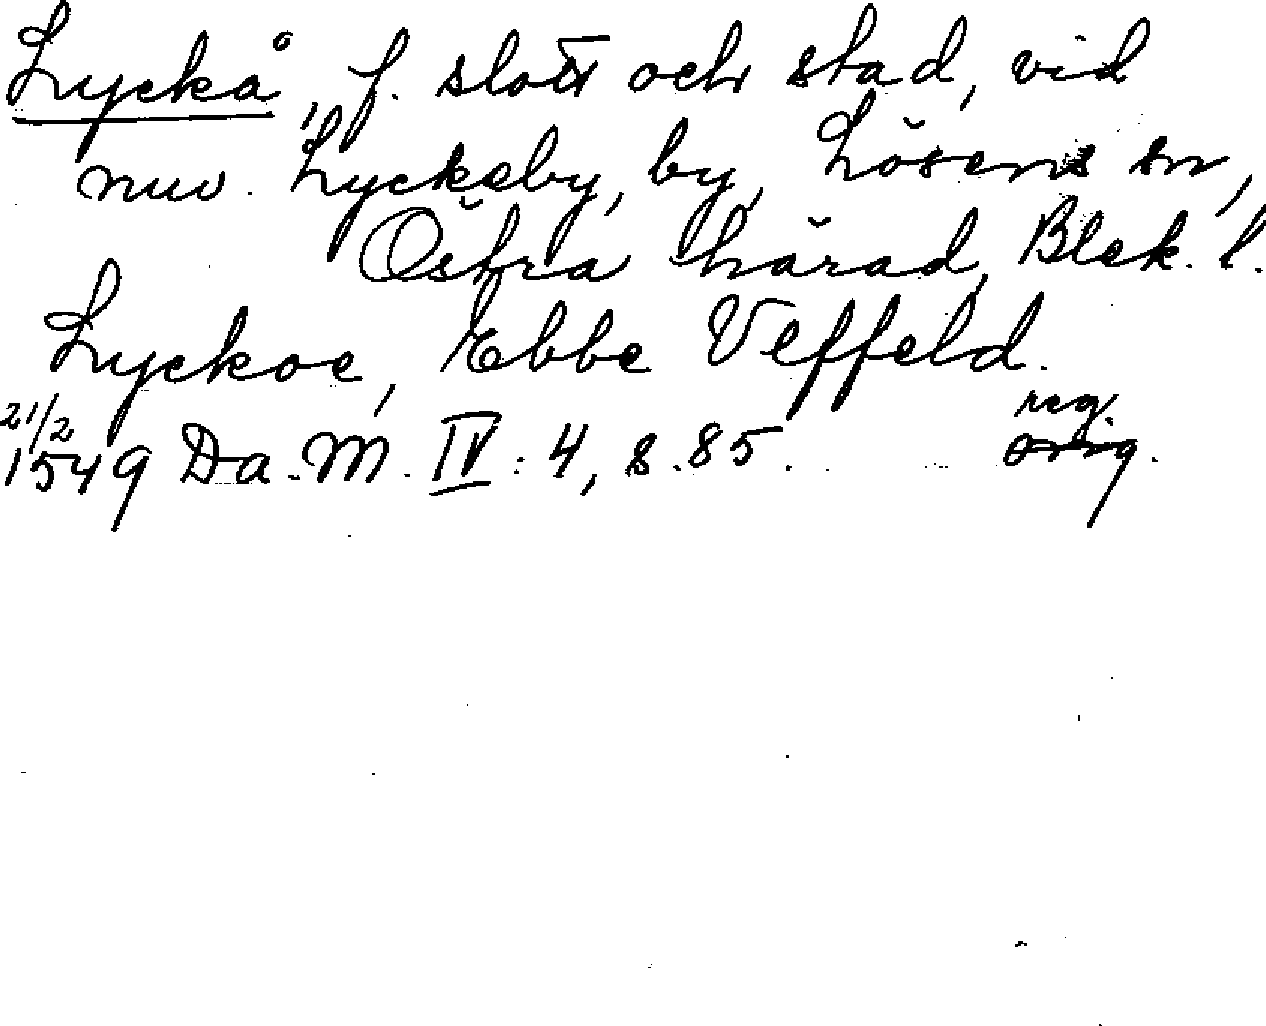 Lyckå, f. slott och stad, vid
nuv. Lyckeby, by, Lösens sn,
Östra härad, Blek. l.
Lyckoe, Ebbe Veffeld.
21/2 reg.
1549 Da. M. IV : 4, s. 85. orig.